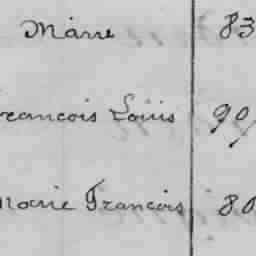 Marie 83
François Louis 90
Marie François 80